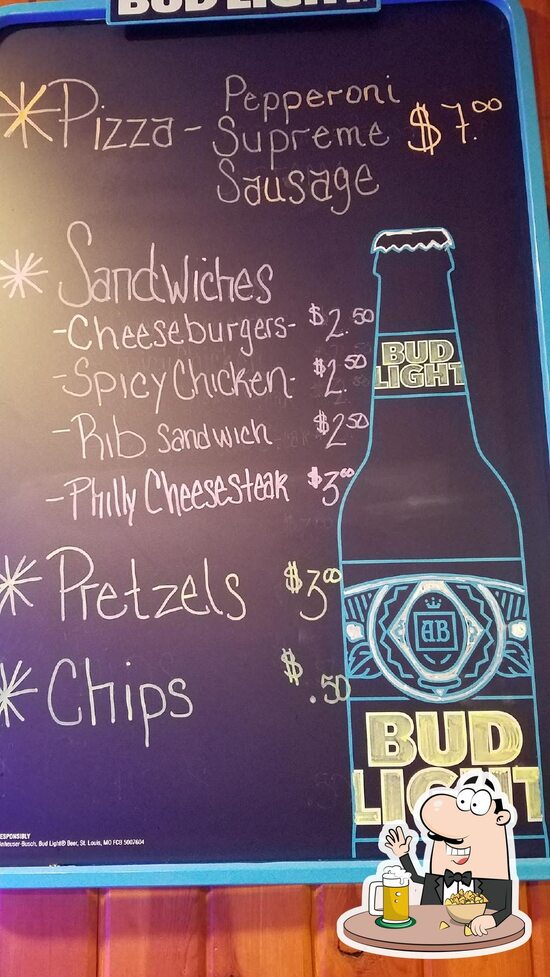 BUD LIGHT
*Pizza - Pepperoni
Supreme $7.00
Sausage
* Sandwiches
-Cheeseburgers- $2.50
-Spicy Chicken- $2.50
-Rib Sandwich $2.50
-Philly Cheesesteak $3.00
*Pretzels $3.00
*Chips $.50
BUD
LIGHT
AB
BUD
LIGHT
ESPONSIBLY
nheuser-Busch, Bud Light® Beer, St. Louis, MO